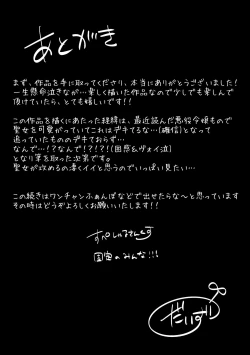 あとがき
まず、作品を手に取ってくださり、本当にありがとうございました!
一生懸命泣きながら…楽しく描いた作品なので少しでも楽しんで
頂けていたら、とても嬉しいです!!
この作品を描くにあたった経緯は、最近読んだ悪役令嬢もので
聖女を可愛がっていてこれはデキてるな…(確信)となって
追っていたもののデキておらず、
なんで…!?なんで!?!?!(困惑&ヴォイ泣)
となり筆を取った次第です。
聖女が攻めるの凄くイイと思うのでいっぱい見たい…
この続きはワンチャンふぁんぼなどで出せたらな〜と思っています
その時はどうぞよろしくお願いいたします!!
すぺしゃるてんくす
国宙のみんな!!!
だいず